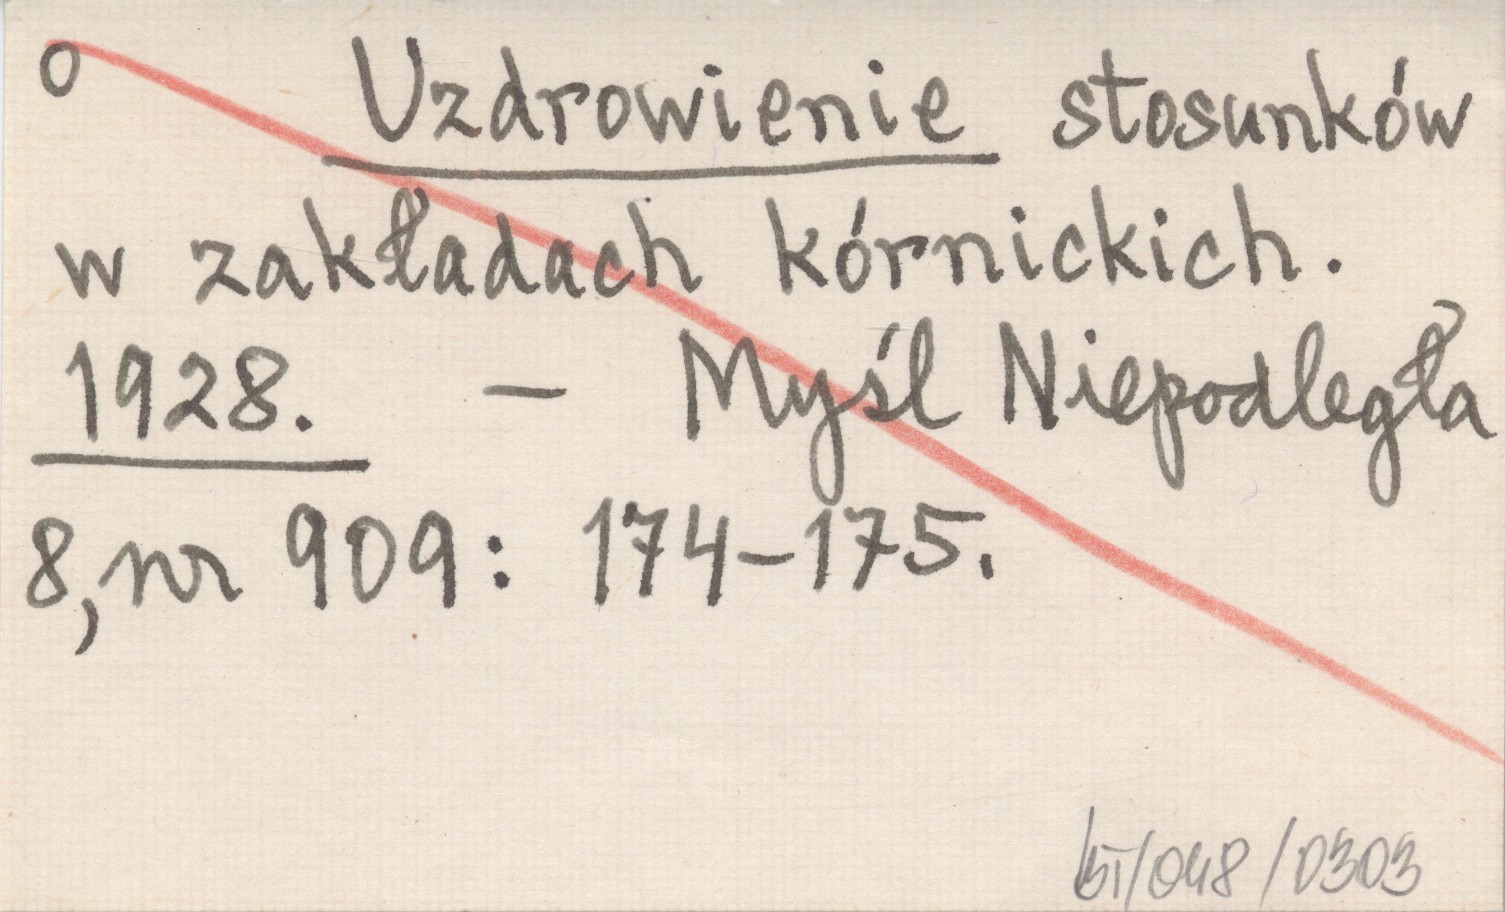 o Uzdrowienie stosunków
w zakładach kórnickich.
1928. – Myśl Niepodległa
8, nr 909: 174–175.
/048/0303